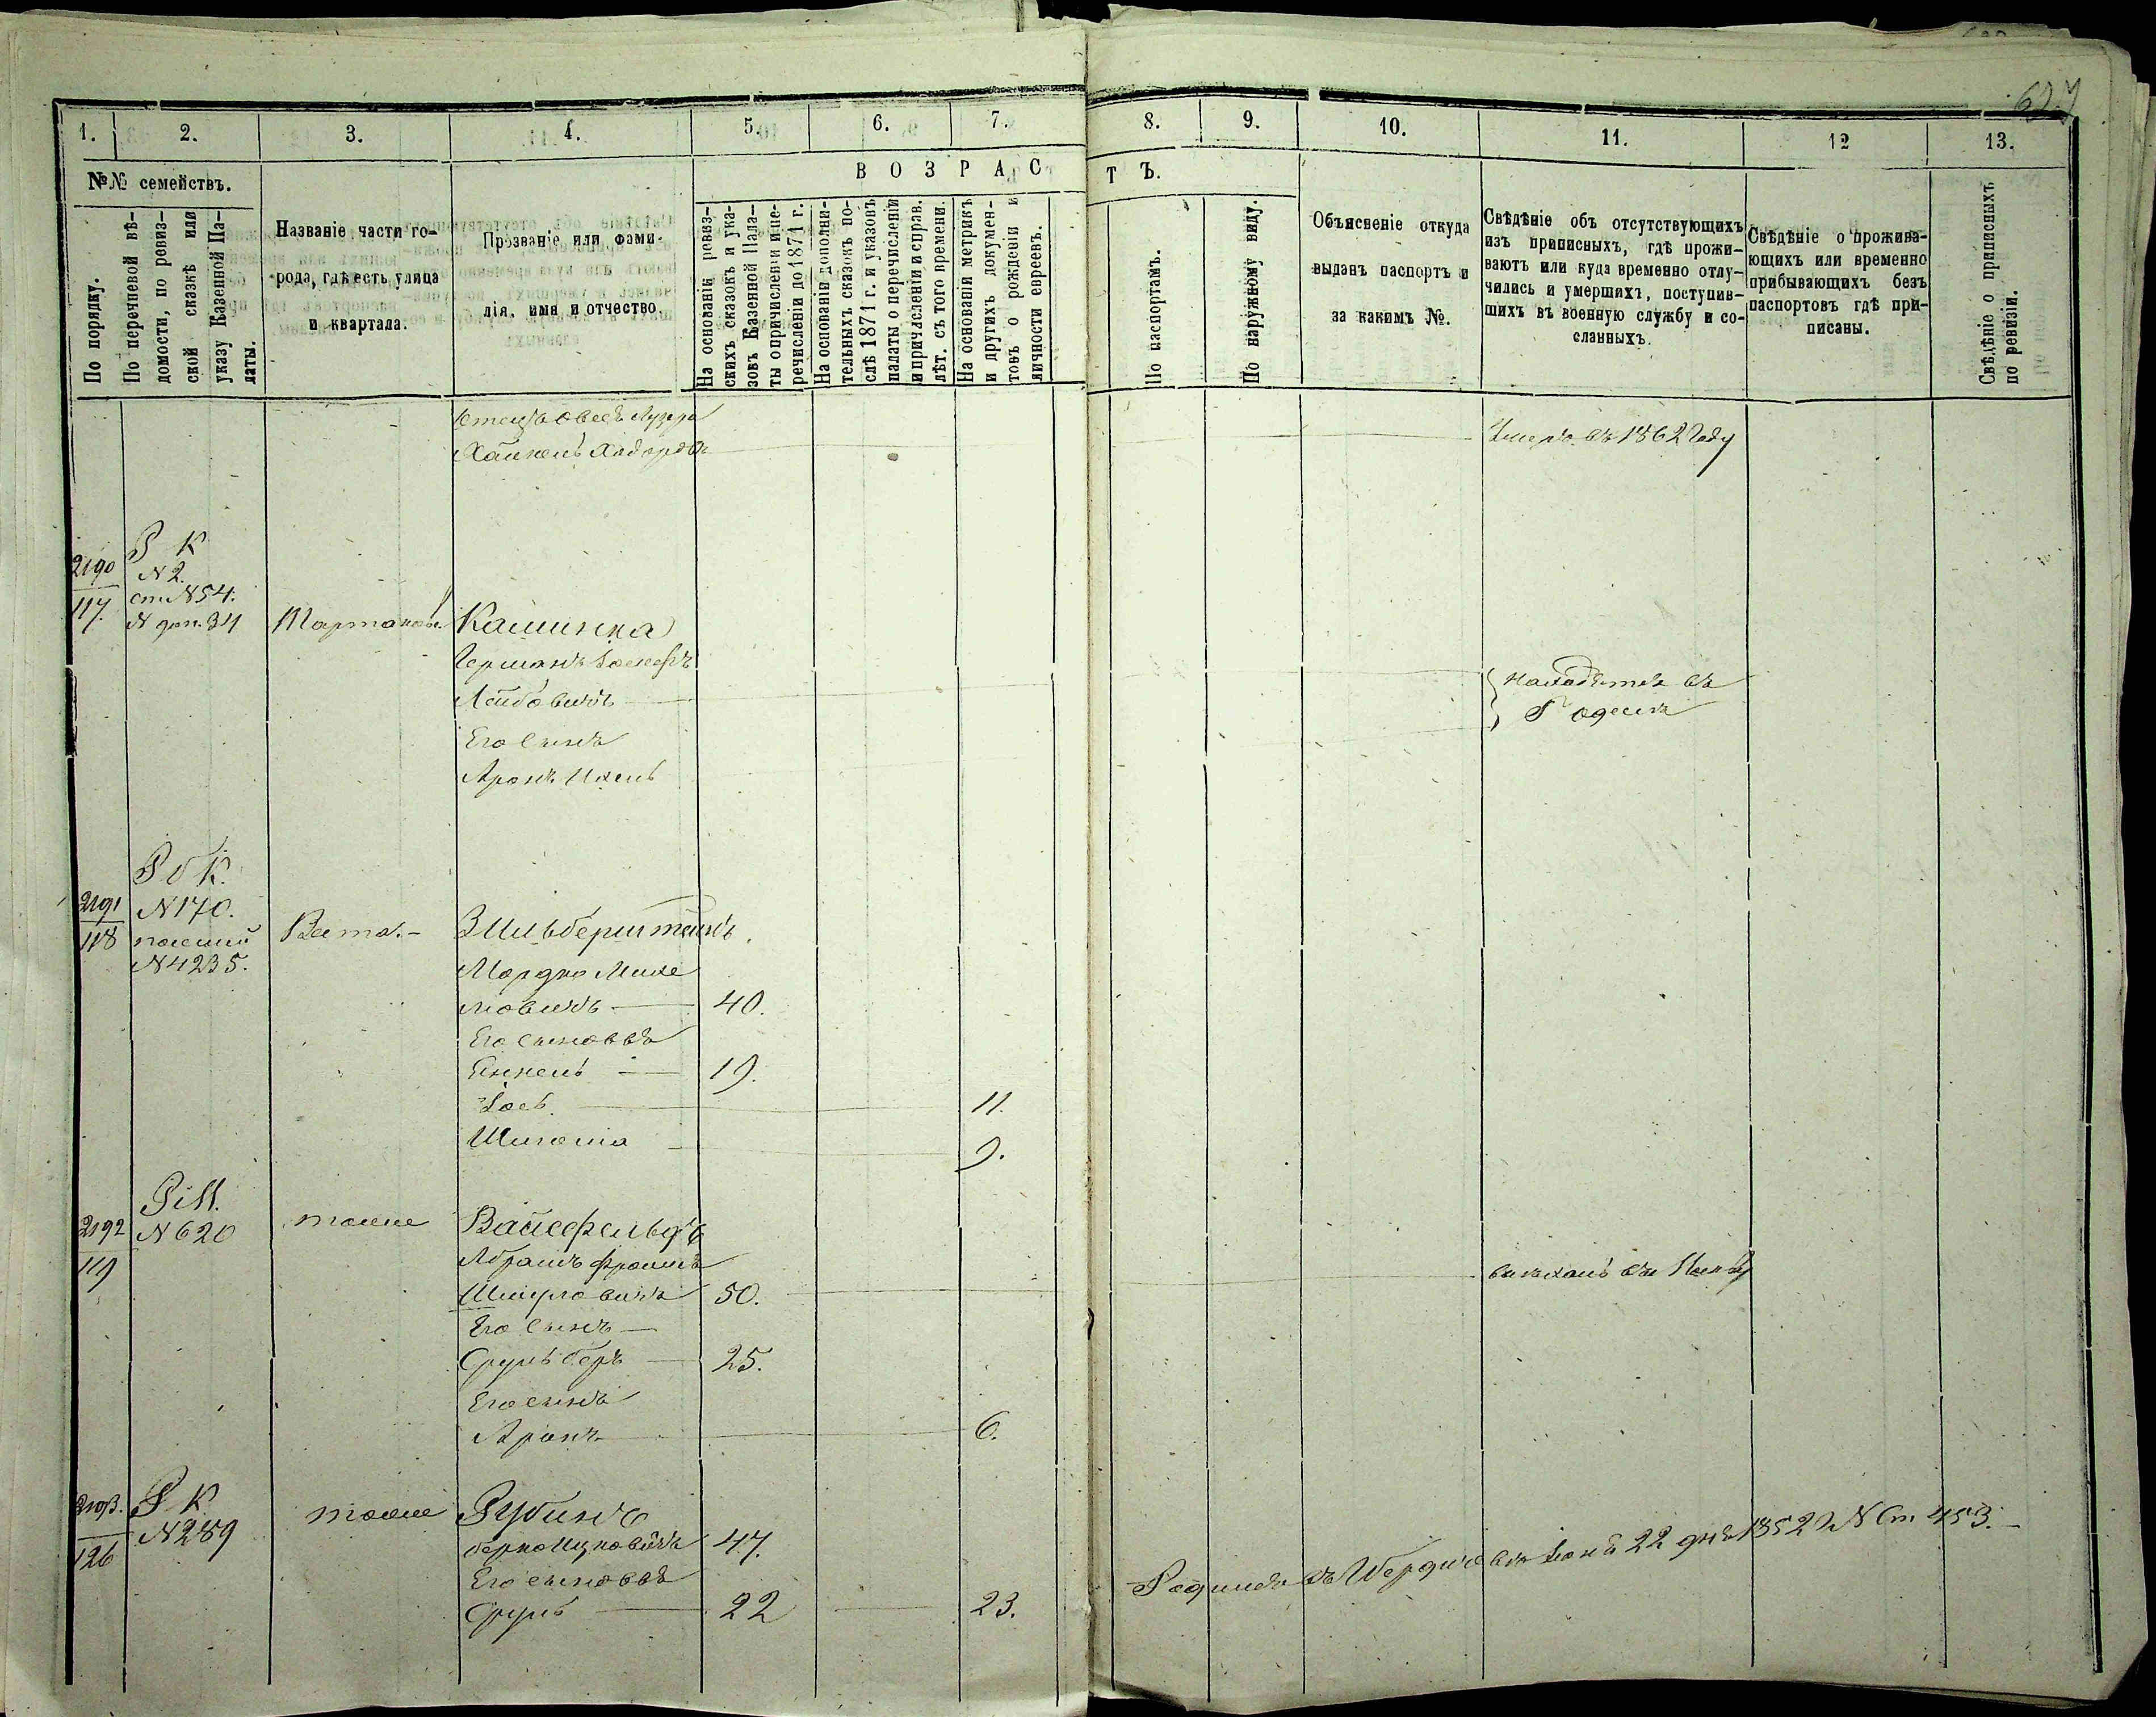 627
1. 2. 3. 4. 5. 6. 7. 8. 9. 10. 11. 12 13.
№№ семействъ.
В О З Р А С Т Ъ.
По порядку.
По перечневой вѣ-
домости, по ревиз-
ской сказкѣ или
указу Казенной Па-
латы.
Названіе части го-
рода, гдѣ есть улица
и квартала.
Прозваніе или фами-
лія, имя и отчество.
На основаніи ревиз-
скихъ сказокъ и ука-
зовъ Казенной Пала-
ты о причисленіи и пе-
речисленіи до 1871 г.
На основаніи дополни-
тельныхъ сказокъ по-
слѣ 1871 г. и указовъ
палаты о перечисленіи
и причисленіи и справ.
лѣт. съ того времени.
На основаніи метрикъ
и другихъ докумен-
товъ о рожденіи и
личности евреевъ.
По паспортамъ.
По наружному виду.
Объясненіе откуда
выданъ паспортъ и
за какимъ №.
Свѣдѣніе объ отсутствующихъ
изъ приписныхъ, гдѣ прожи-
ваютъ или куда временно отлу-
чились и умершихъ, поступив-
шихъ въ военную службу и со-
сланныхъ.
Свѣдѣніе о прожива-
ющихъ или временно
прибывающихъ безъ
паспортовъ гдѣ при-
писаны.
Свѣдѣніе о приписныхъ
по ревизіи.
Умеръ въ 1862 Году
2190
117.
Р К
N 2.
ст N 54.
N доп. 31
Каминка
Германъ Іосефъ
Лейбовичъ
Его Сынъ
Аронъ Ихель
Находятся въ
Г Одессѣ
2191
118
Р б К.
N 170.
N 4235.
Зильберштейнъ
Мордко Михе
левичъ 40.
Его Сыновья
Енкель 19.
Іось 11.
Шліома 9.
2192
119
N 620
тоже
Вайсфельдъ
Абрамъ Фроимъ
Шмуловичъ 50.
Его Сынъ
Сруль Беръ 25.
Его сынъ
Аронъ 6.
2193.
126
Р К
N 289
тоже
Рубинъ
Берко Ицковичъ 47.
Его сыновья
Сруль 22 23.
Родился въ Бердичевѣ Іюня 22 дня 1852 N Ст 453.